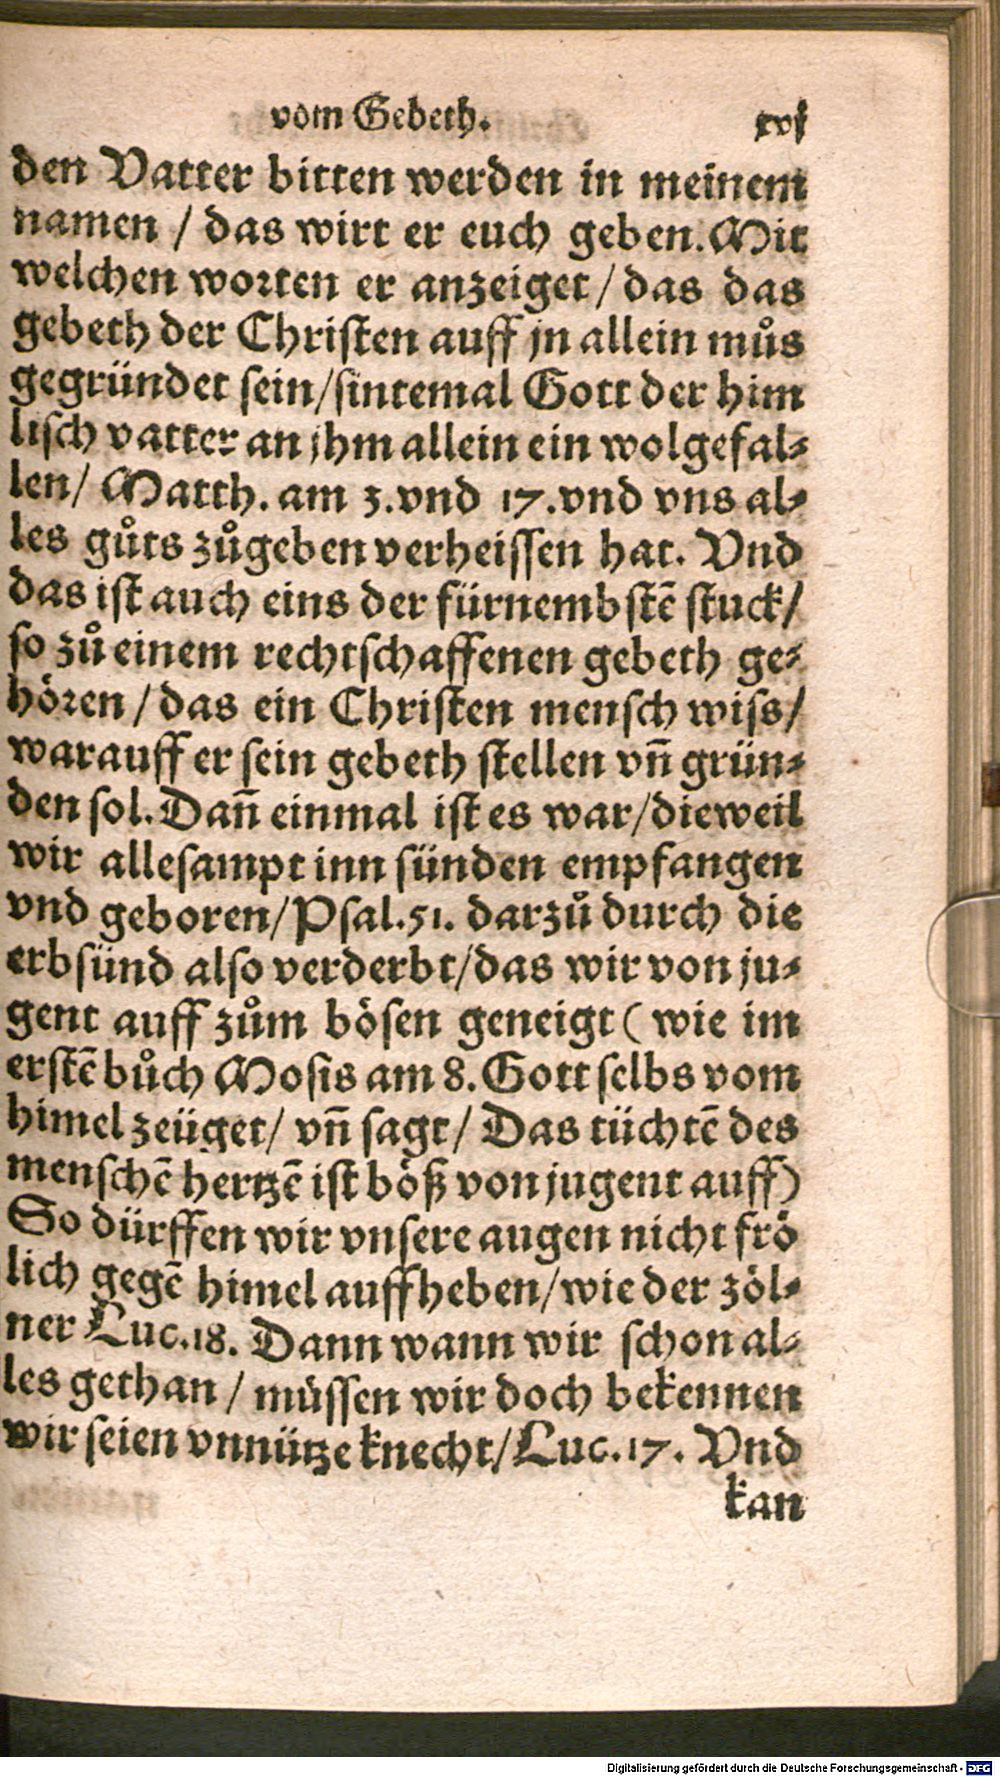 vom Gebeth. xvj
den Vatter bitten werden in meinem
namen / das wirt er euch geben. Mit
welchen worten er anzeiget / das das
gebeth der Christen auff jn allein můs
gegründet sein / sintemal Gott der him
lisch vatter an jhm allein ein wolgefal⸗
len / Matth. am 3. vnd 17. vnd vns al⸗
les gůts zůgeben verheissen hat. Vnd
das ist auch eins der fürnembstē stuck /
so zů einem rechtschaffenen gebeth ge⸗
hören / das ein Christen mensch wiss /
warauff er sein gebeth stellen vn̄ grün⸗
den sol. Dan̄ einmal ist es war / dieweil
wir allesampt inn sünden empfangen
vnd geboren / Psal. 51. darzů durch die
erbsünd also verderbt / das wir von ju⸗
gent auff zům bösen geneigt ( wie im
erstē bůch Mosis am 8. Gott selbs vom
himel zeüget / vn̄ sagt / Das tüchtē des
menschē hertzē ist böß von jugent auff )
So dürffen wir vnsere augen nicht frö
lich gegē himel auffheben / wie der zöl⸗
ner Luc. 18. Dann wann wir schon al⸗
les gethan / müssen wir doch bekennen
wir seien vnnütze knecht / Luc. 17. Vnd
kan
Digitalisierung gefördert durch die Deutsche Forschungsgemeinschaft - DFG